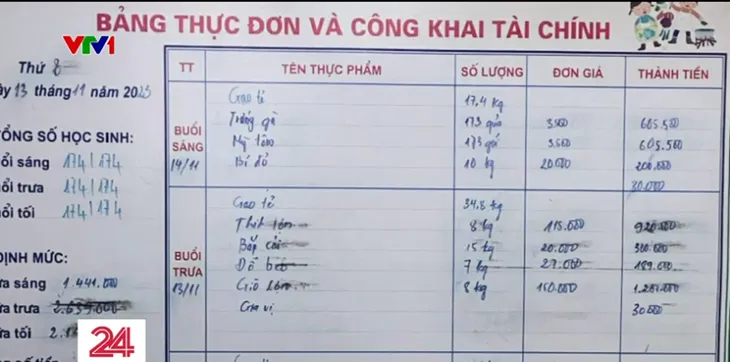 BẢNG THỰC ĐƠN VÀ CÔNG KHAI TÀI CHÍNH
VTV1
Thứ
ày 13 tháng 11 năm 2025
TỔNG SỐ HỌC SINH:
ổi sáng 174/174
ổi trưa 174/174
ổi tối 174/174
ĐỊNH MỨC:
ưa sáng 1.441.000
ưa trưa
ưa tối
TT TÊN THỰC PHẨM SỐ LƯỢNG ĐƠN GIÁ THÀNH TIỀN
BUỔI SÁNG 14/11
Gạo tẻ 17,4 kg
Trứng gà 173 quả 3.500 605.500
Mỳ tôm 173 3.500 605.500
Bí đỏ 10 kg 20.000 200.000
30.000
BUỔI TRƯA 13/11
Gạo tẻ 34,8 kg
Thịt lợn 8 kg 115.000 920.000
Bắp cải 15 kg 20.000 300.000
Đỗ 7 kg 27.000 189.000
Giò 8 kg 150.000
Gia vị 30.000
24